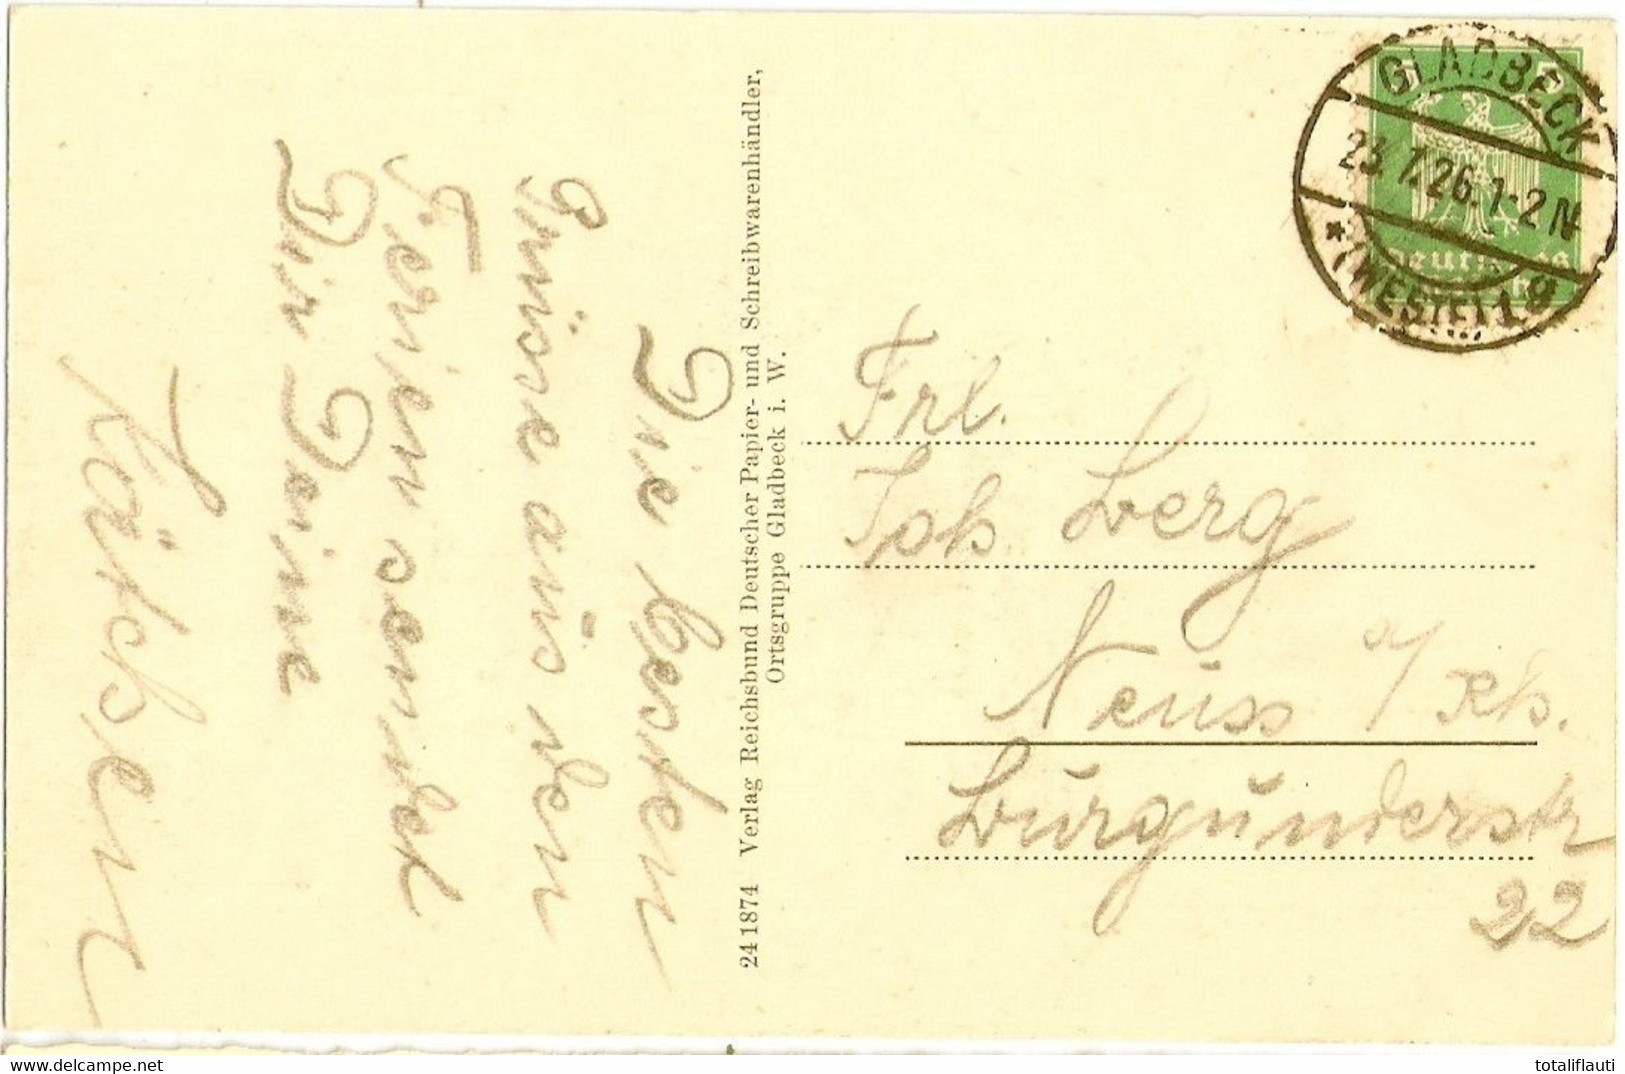 Die besten
Grüsse aus den
Ferien sendet
Dir Deine
Kätchen
241874 Verlag Reichsbund Deutscher Papier- und Schreibwarenhändler,
Ortsgruppe Gladbeck i. W.
GLADBECK
23.7.26.1-2N
* (WESTF) 1 g
5 5
Deutsches
Frl.
Joh Berg
Neuss a/Rh.
Burgunderstr
22
totaliflauti